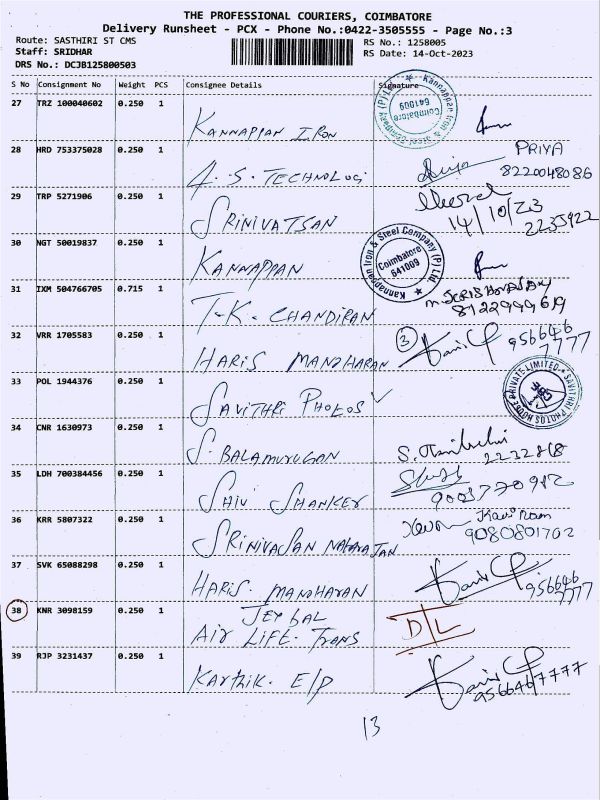 THE PROFESSIONAL COURIERS, COIMBATORE
Delivery Runsheet - PCX - Phone No.:0422-3505555 - Page No.:3
Route: SASTHIRI ST CMS
RS No.: 1258005
Staff: SRIDHAR
RS Date: 14-Oct-2023
DRS No.: DCJB125800503
S No Consignment No Weight PCS Consignee Details Signature
27 TRZ 100040602 0.250 1 KANNAPPAN IRON
Kannappan Iron & Steel Company (P) Ltd. Coimbatore 641009
28 HRD 753375028 0.250 1 A.S. TECHNOLOGI
PRIYA
8220048086
29 TRP 5271906 0.250 1 SRINIVATSAN
14/10/23
2235922
30 NGT 50019837 0.250 1 KANNAPPAN
Kannappan Iron & Steel Company (P) Ltd. Coimbatore 641009
31 IXM 504766705 0.715 1 T.K. CHANDIRAN
8122999619
32 VRR 1705583 0.250 1 HARIS MANOHARAN
3
956646
7777
33 POL 1944376 0.250 1 SAVITHRI PHOTOS
SAVITHRI PHOTOS HOUSE PRIVATE LIMITED
34 CNR 1630973 0.250 1 S. BALAMURUGAN
2232868
35 LDH 700384456 0.250 1 SHIV SHANKER
9003770982
36 KRR 5807322 0.250 1 SRINIVASAN NATARAJAN
Kavi Ram
9080801702
37 SVK 65088298 0.250 1 HARIS. MANOHARAN
956646
7777
38 KNR 3098159 0.250 1 JEY BAL
AIR LIFE. TRANS
D/L
39 RJP 3231437 0.250 1 KARTHIK. E/P
9566467777
13